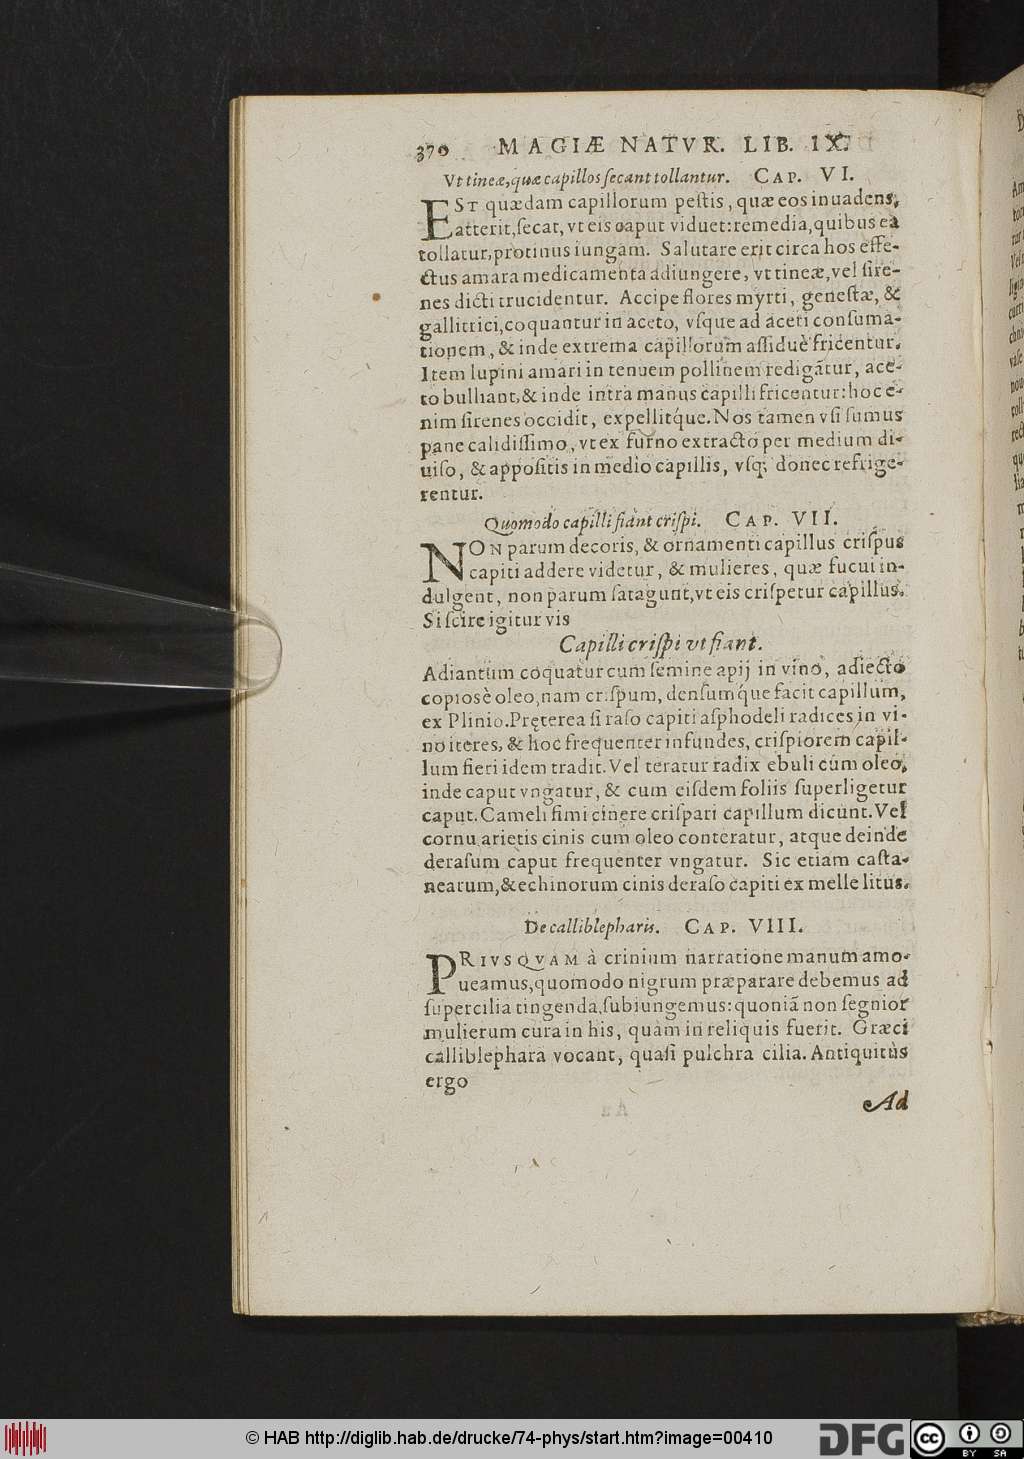 370 MAGIÆ NATVR. LIB. IX.
Vt tineæ, quæ capillos ſecant tollantur. CAP. VI.
EST quædam capillorum peſtis, quæ eos inuadens,
atterit, ſecat, vt eis caput viduet: remedia, quibus ea
tollatur, protinus iungam. Salutare erit circa hos effe-
ctus amara medicamenta adiungere, vt tineæ, vel ſire-
nes dicti trucidentur. Accipe flores myrti, geneſtæ, &
gallitrici, coquantur in aceto, vſque ad aceti conſuma-
tionem, & inde extrema capillorum aſſiduè fricentur.
Item lupini amari in tenuem pollinem redigātur, ace-
to bulliant, & inde intra manus capilli fricentur: hoc e-
nim ſirenes occidit, expellitq́ue. Nos tamen vſi ſumus
pane calidiſſimo, vt ex furno extracto per medium di-
uiſo, & appoſitis in medio capillis, vſq; donec refrige-
rentur.
Quomodo capilli fiant criſpi. CAP. VII.
NON parum decoris, & ornamenti capillus criſpus
capiti addere videtur, & mulieres, quæ fucui in-
dulgent, non parum ſatagunt, vt eis criſpetur capillus.
Si ſcire igitur vis
Capilli criſpi vt fiant.
Adiantum coquatur cum ſemine apij in vino, adiecto
copiosè oleo, nam criſpum, denſumq́ue facit capillum,
ex Plinio. Pręterea ſi raſo capiti aſphodeli radices in vi-
no iteres, & hoc frequenter infundes, criſpiorem capil-
lum fieri idem tradit. Vel teratur radix ebuli cùm oleo,
inde caput vngatur, & cum eiſdem foliis ſuperligetur
caput. Cameli fimi cinere criſpari capillum dicunt. Vel
cornu arietis cinis cum oleo conteratur, atque deinde
deraſum caput frequenter vngatur. Sic etiam caſta-
nearum, & echinorum cinis deraſo capiti ex melle litus.
De calliblepharis. CAP. VIII.
PRIVSQVAM à crinium narratione manum amo-
ueamus, quomodo nigrum præparare debemus ad
ſupercilia tingenda, ſubiungemus: quoniã non ſegnior
mulierum cura in his, quàm in reliquis fuerit. Græci
calliblephara vocant, quaſi pulchra cilia. Antiquitùs
ergo
Ad
© HAB http://diglib.hab.de/drucke/74-phys/start.htm?image=00410
DFG
cc BY SA